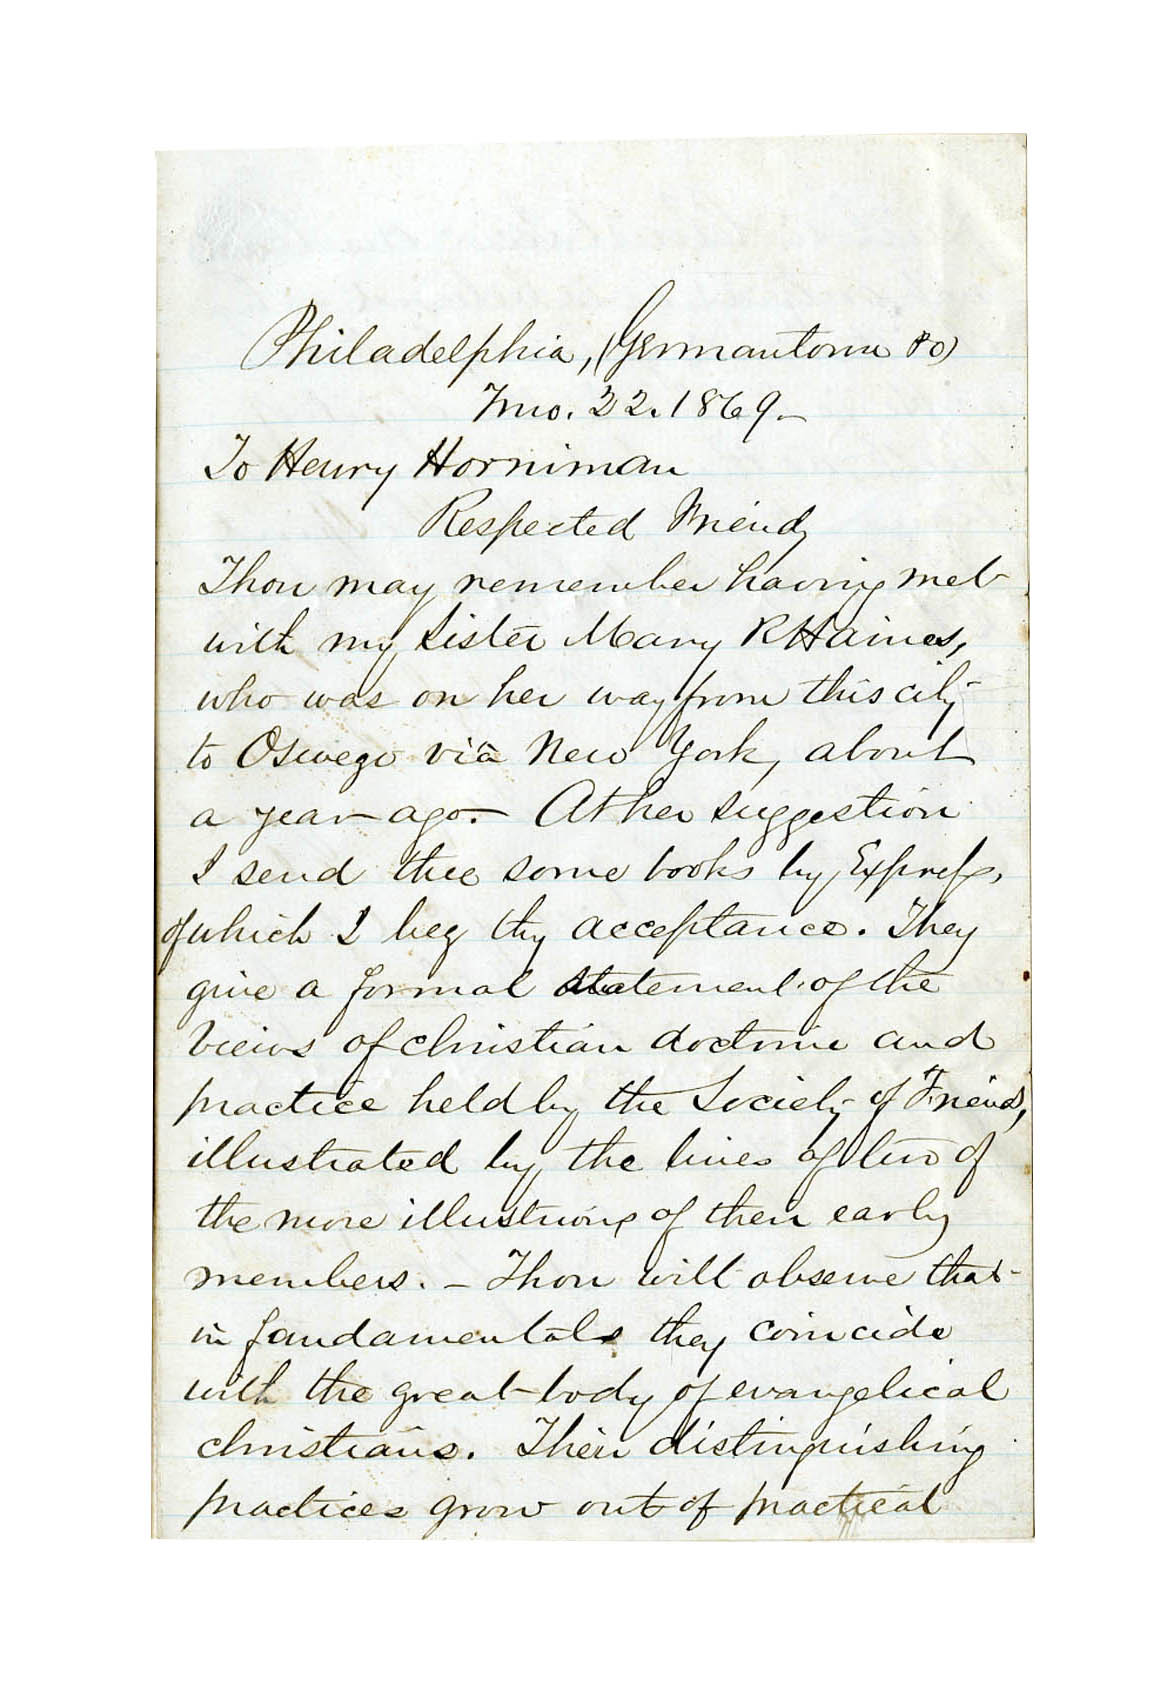 Philadelphia, (Germantown PO)
7mo. 22. 1869.—
To Henry Horniman
Respected Friend,
Thou may remember having met
with my Sister Mary R Haines,
who was on her way from this city
to Oswego viâ New York, about
a year ago.— At her suggestion
I send thee some books by Express,
of which I beg thy acceptance. They
give a formal statement of the
views of christian doctrine and
practice held by the Society of "Friends,
illustrated by the lives of two of
the more illustrious of their early
members. — Thou will observe that
in fundamentals they coincide
with the great body of evangelical
christians. Their distinguishing
practices grow out of practical